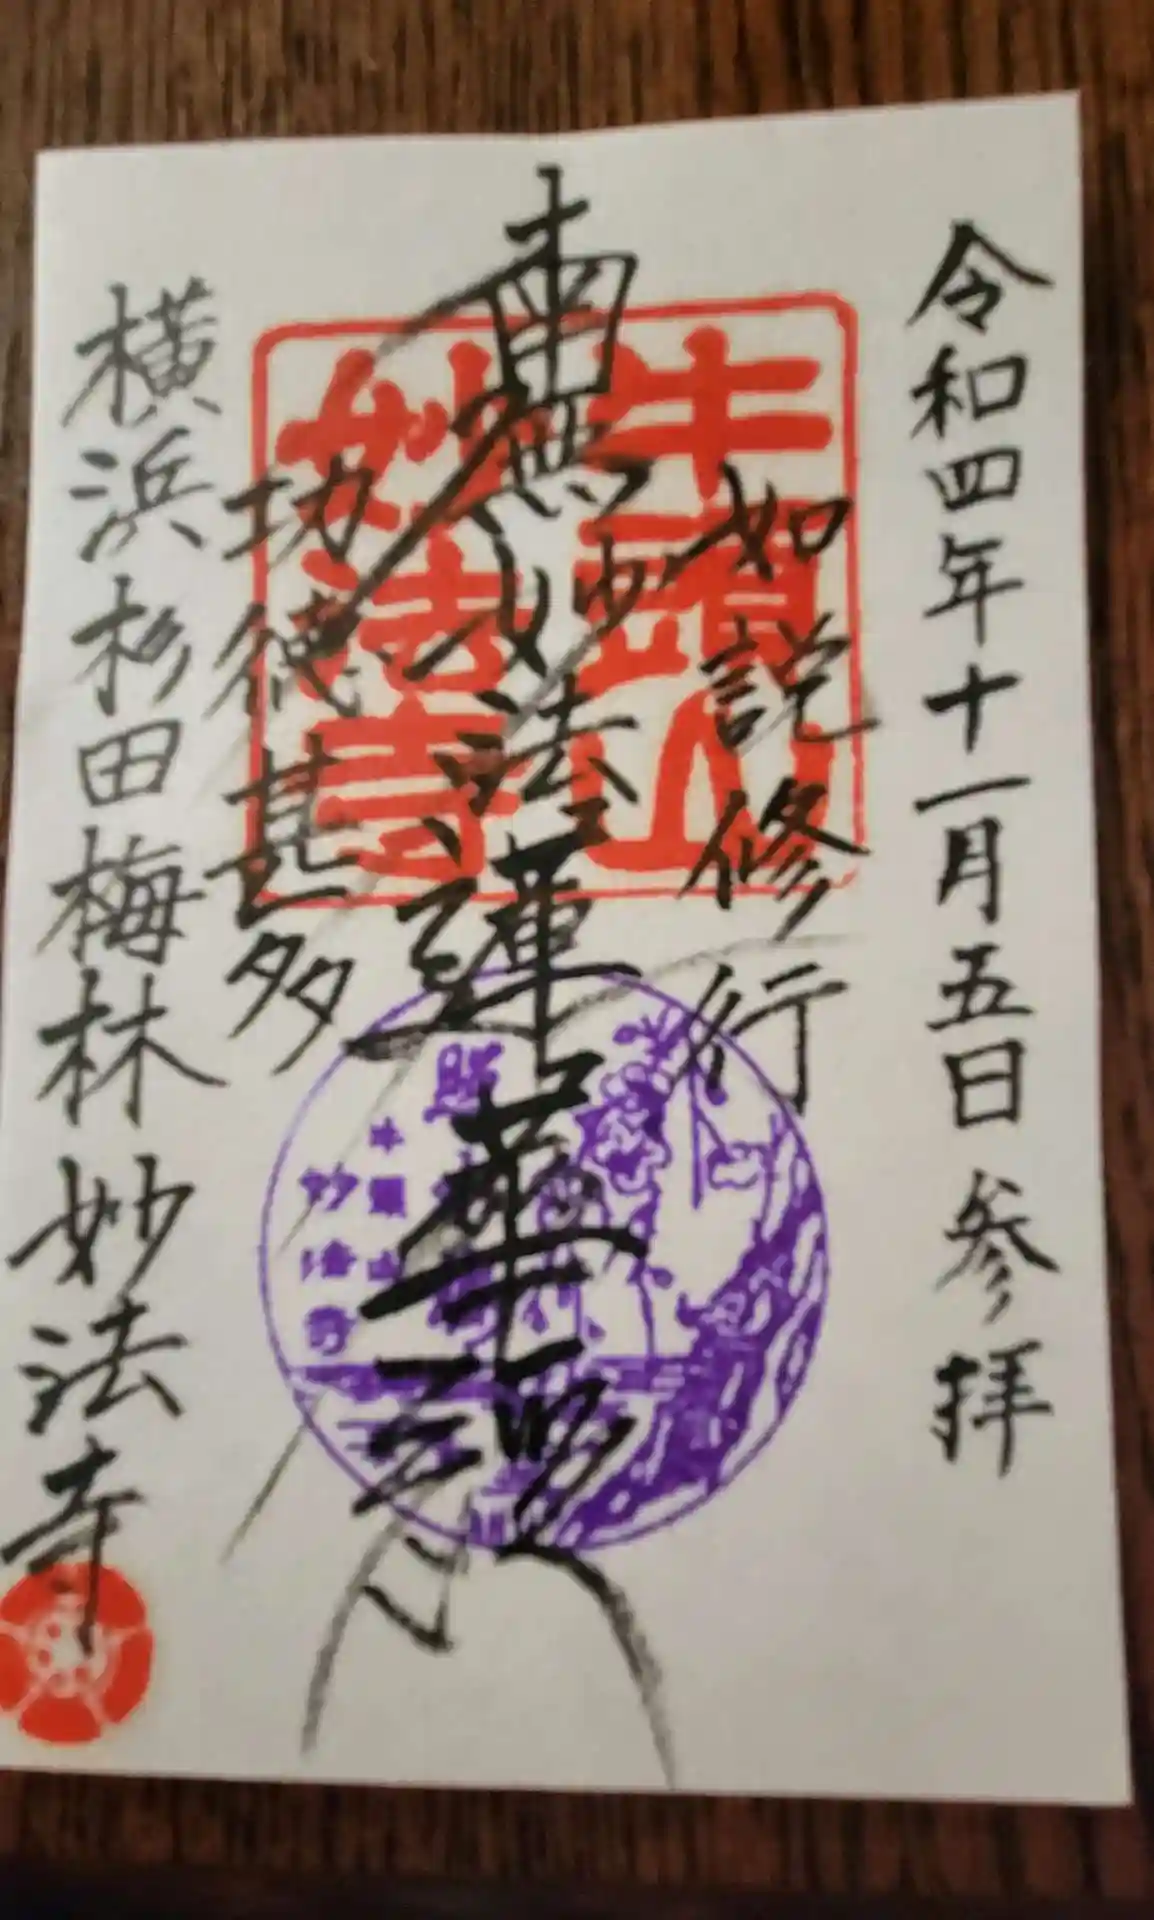 令和四年十一月五日参拝
如説修行
南無妙法蓮華経
功徳甚多
横浜杉田梅林妙法寺
牛頭山
妙法寺
牛頭山
妙法寺